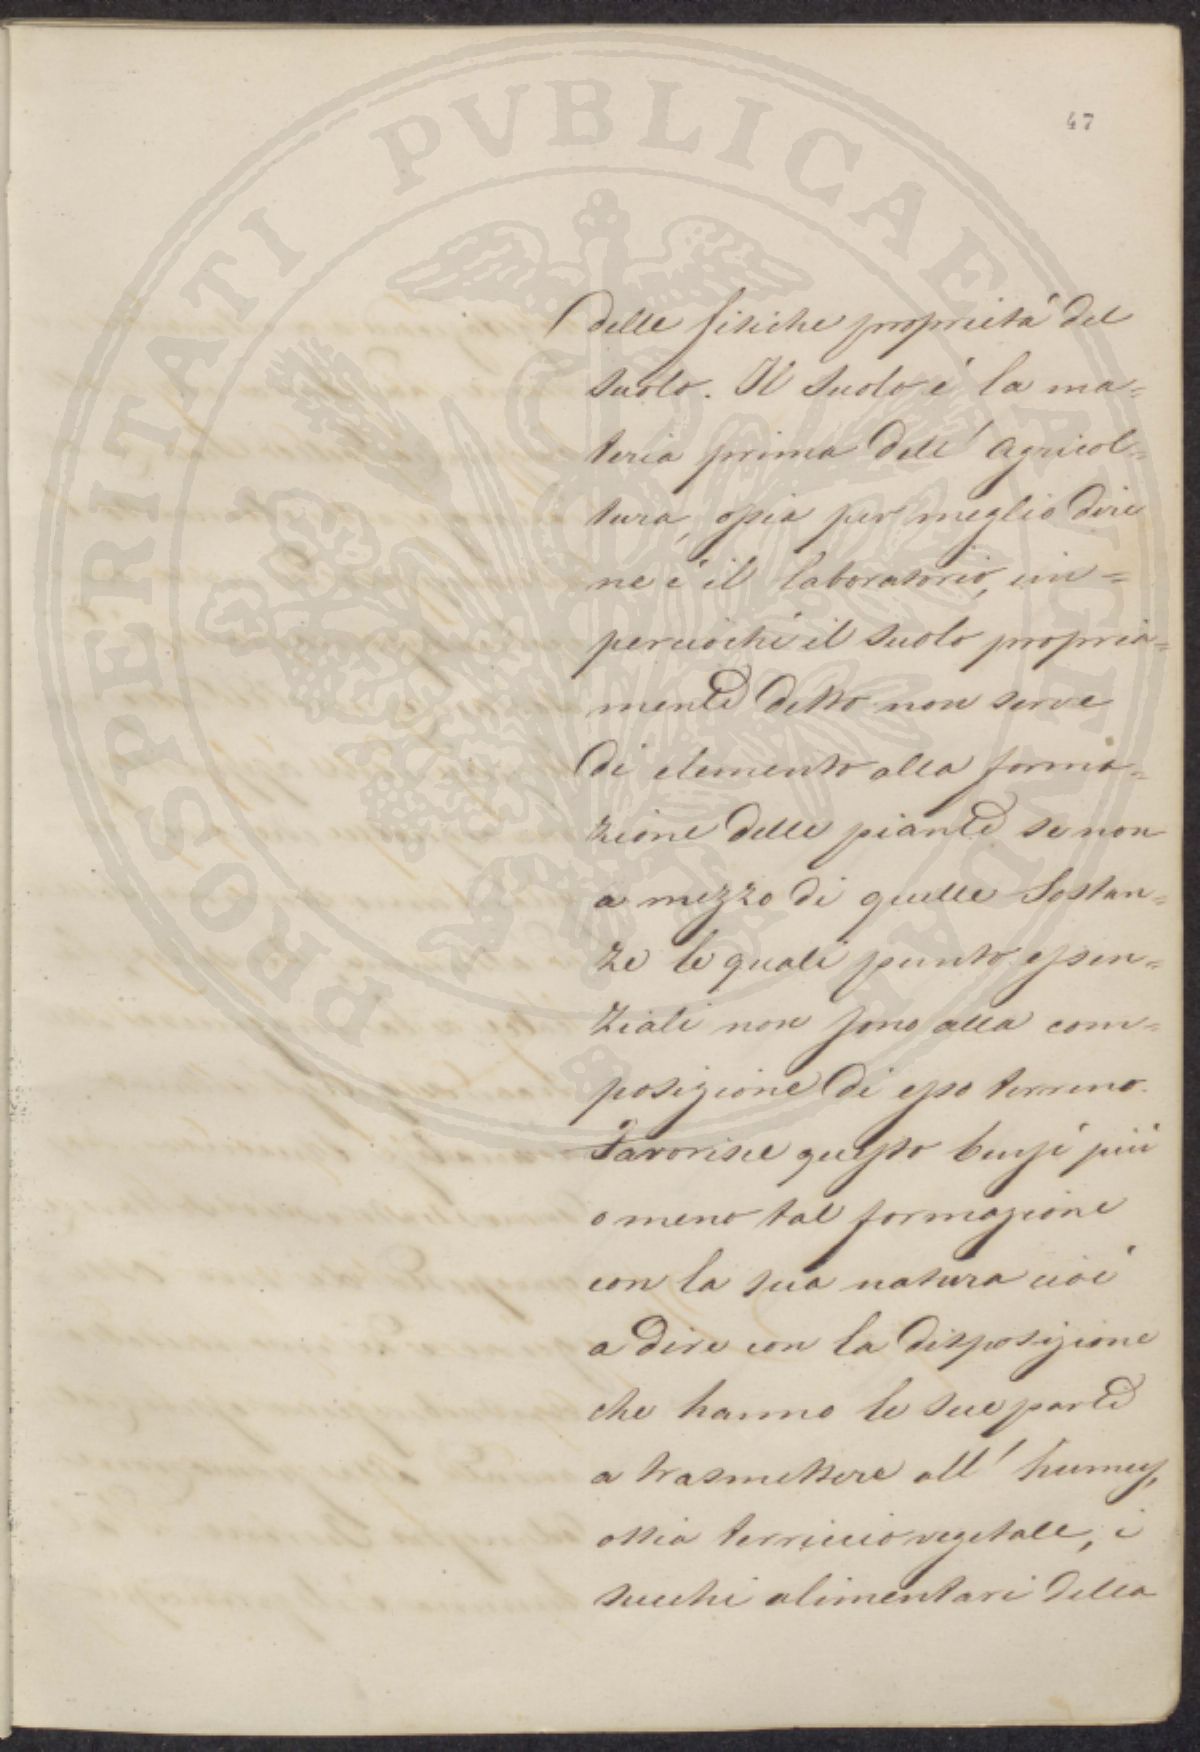 47
PROSPERITATI PVBLICAE AVGENDAE
delle fisiche proprietà del
suolo. Il suolo è la ma=
teria prima dell' agricol=
tura, ossia per meglio dire
ne è il laboratorio, im=
perciochè il suolo propria=
mente detto non serve
di elemento alla forma=
zione delle piante se non
a mezzo di quelle sostan=
ze le quali punto essen=
ziali non sono alla com=
posizione di esso terreno.
Favorisce questo bensì più
o meno tal formazione
con la sua natura cioè
a dire con la disposizione
che hanno le sue parti
a trasmettere all' humus,
ossia terriccio vegetale, i
succhi alimentari della